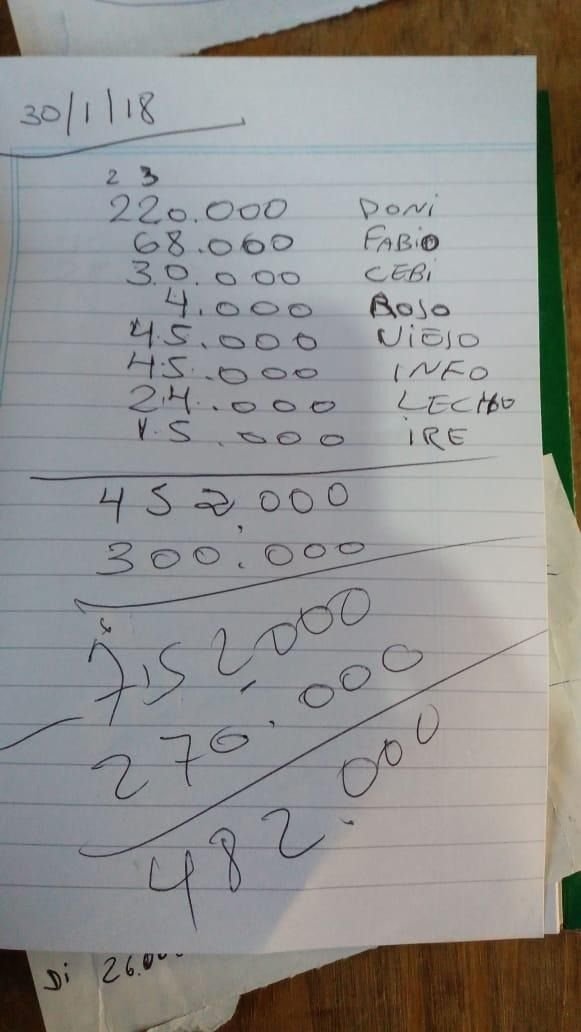 30/1/18
2 3
220.000 DONi
68.000 FABiO
30.000 CEBi
4.000 ROSO
45.000 NiESO
45.000 INFO
24.000
15.000 iRE
452.000
300.000
752000
270.000
482.000
Di 26.00